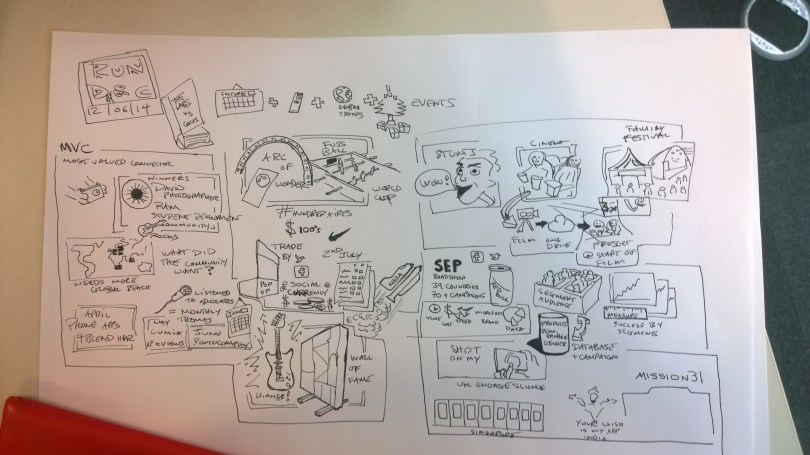 12/06/14
THE
LABS
CULTURE
+
+
GLOBAL
TRENDS
+
EVENTS
MVC
MOST VALUED CONNECTOR
WINNERS
DAVID
PHOTOGRAPHER
RAM
STUDENT DEVELOPMENT
COMMUNITY
ROCKS
WHAT DID
THE COMMUNITY
WANT?
NEEDS MORE
GLOBAL REACH
LISTENED
TO ADVOCATES
= MONTHLY
THEMES
APRIL
PHONE APPS
+ BLEND HDR
MAY
LUMIA
REVIEWS
JUNE
PHOTOGRAPHY
ARC
OF
WONDER
FUSS
BALL
WORLD
CUP
#HUNDREDAIRES
$100's
TRADE
BY
2ND
JULY
POP
UP
SOCIAL
CURRENCY
NASA
WINNER
WALL
OF
FAME
STUNTS
WOW!
CINEMA
FAMILY
FESTIVAL
FILM
ONE
DRIVE
PROJECT
START OF
FILM
SEP
ROADSHOW
39 COUNTRIES
70+ CAMPAIGNS
RED
BULL
TIME
SPEED
DATA
SEGMENT
AUDIENCE
MEASURE
SUCCESS BY
SEGMENTS
DATABASE
+ CAMPAIGN
SHOT
ON MY
UK ENGAGE SCIENCE
SINGAPORE
YOUR WISH
IS MY APP
INDIA
MISSION31